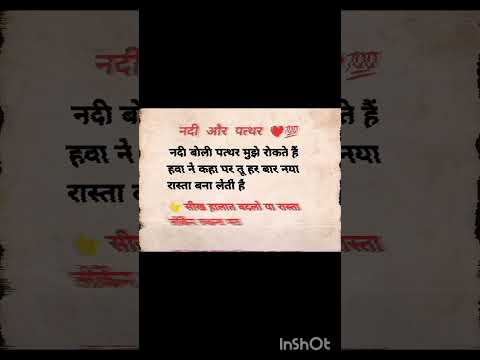 नदी और पत्थर ❤️💯
नदी बोली पत्थर मुझे रोकते हैं
हवा ने कहा पर तू हर बार नया
रास्ता बना लेती है
👉 सीख हालात बदलो या रास्ता
लेकिन रुकना मत
InShOt